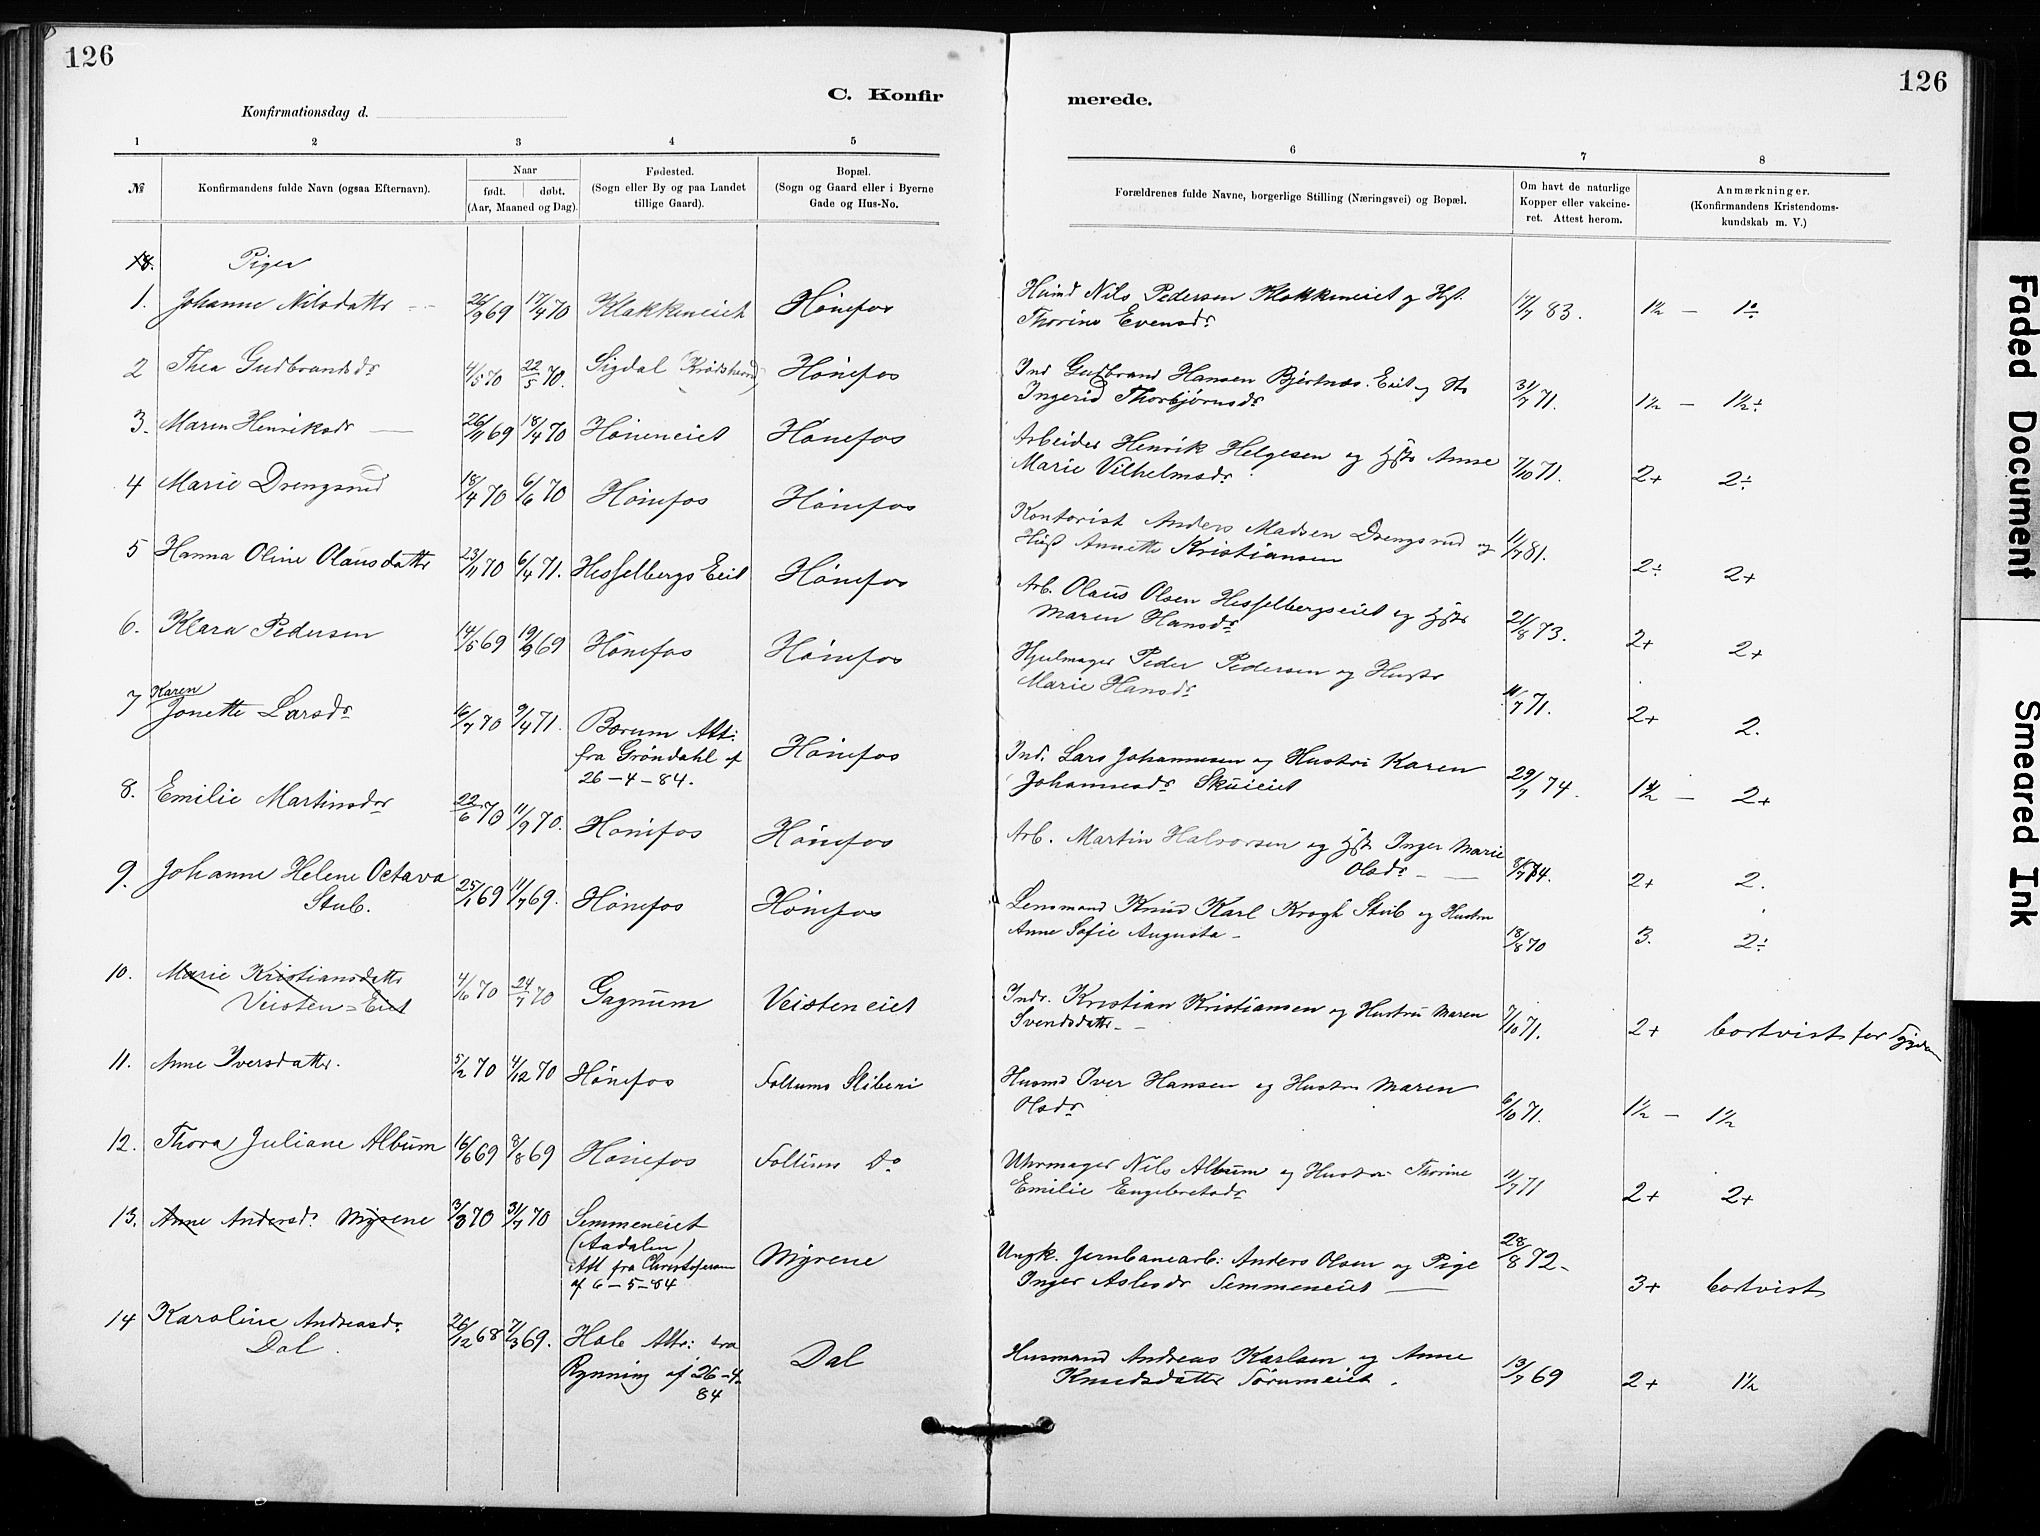 126
C. Konfir
Konfirmationsdag d.
1 2 3 4 5
№
Konfirmandens fulde Navn (ogsaa Efternavn).
Naar
født. døbt.
(Aar, Maaned og Dag).
Fødested.
(Sogn eller By og paa Landet
tillige Gaard).
Bopæl.
(Sogn og Gaard eller i Byerne
Gade og Hus-No.
Piger
1. Johanne Nilsdatter 26/9 69 17/4 70 Klækkeneiet Hönefos
2 Thea Gudbrandsdr 4/5 70 22/5 70. Sigdal (Krödsherred) Hönefos
3. Maren Henriksdr — 26/11 69 18/4 70 Höneneiet Hönefos
4 Marie Drengsrud 18/4 70 6/6 70 Hönefos Hönefos
5 Hanna Oline Olausdatter 23/11 70 6/4 71. Hesselbergs Eiet Hönefos
6. Klara Pedersen 14/5 69 19/9 69 Hönefos Hönefos
Karen
7 Jonette Larsdr 16/7 70 9/4 71. Bærum Att: Hönefos
fra Gröndahl af
26-4-84.
8. Emilie Martinsdr 22/6 70 11/9 70. Hönefos Hönefos
9. Johanne Helene Octava 25/1 69 11/7 69. Hönefos Hönefos
Stub.
10. Marie Kristiansdatter 4/6 70 24/7 70 Gagnum Veisteneiet
Veisten=Eiet
11. Anne Iversdatter. 5/2 70 4/12 70 Hönefos Follums Sliberi
12. Thora Juliane Album 16/6 69 8/8 69 Hönefos Follums Do
13. Anne Andersdr Myrene 3/3 70 31/7 70 Semmeneiet Myrene
(Aadalen)
Att fra Christofersen
af 6-5-84
14 Karoline Andreasdr 26/12 68 7/3 69. Hole Att: fra Dal
Dal. Rynning af 26-4-
84
126
merede.
6 7 8
Forældrenes fulde Navne, borgerlige Stilling (Næringsvei) og Bopæl.
Om havt de naturlige
Kopper eller vakcine-
ret. Attest herom.
Anmærkninger.
(Konfirmandens Kristendoms-
kundskab m. V.)
Husmd Nils Pedersen Klækkeneiet og Hst. 17/7 83. 1½ — 1÷
Thorine Evensdr
Ind Gudbrand Hansen Bjertnæs. Eiet og Hst 31/7 71. 1½ — 1½÷
Ingerid Thorbjörnsdr
Arbeider Henrik Helgesen og Hst Anne 7/10 71. 2+ 2÷
Marie Vilhelmsdr
Kontorist Anders Madsen Drengsrud og 11/7 81. 2÷ 2+
Hust Annette Kristiansen
Arb. Olaus Olsen Hesselbergseiet og Hst 21/8 73. 2+ 2+
Maren Hansdr
Hjulmager Peder Pedersen og Hustr 11/7 71. 2+ 2.
Marie Hansdr
Ind. Lars Johannesen og Hustru Karen 29/7 74. 1½ — 2+
Johannesdr Skuieiet
Arb. Martin Halvorsen og Hst Inger Marie 84. 2+ 2.
Olsdr —
Lensmand Knud Karl Krogh Stub og Hustru 18/8 70 3. 2÷
Anne Sofie Augusta —
Indr. Kristian Kristiansen og Hustru Maren 7/10 71. 2+ bortvist for
Svendsdatter —
Husmd Iver Hansen og Hustru Maren 6/10 71. 1½ — 1½
Olsdr
Uhrmager Nils Album og Hustru Thorine 11/7 71 2+ 2+
Emilie Engebretsdr
Ungk. Jernbanearb: Anders Olsen og Pige 28/8 72- 3+ bortvist
Inger Aslesdr Semmeneiet —
Husmand Andreas Karlsen og Anne 13/7 69 2+ 1½
Knudsdatter Sörumeiet.
Faded Document
Smeared Ink